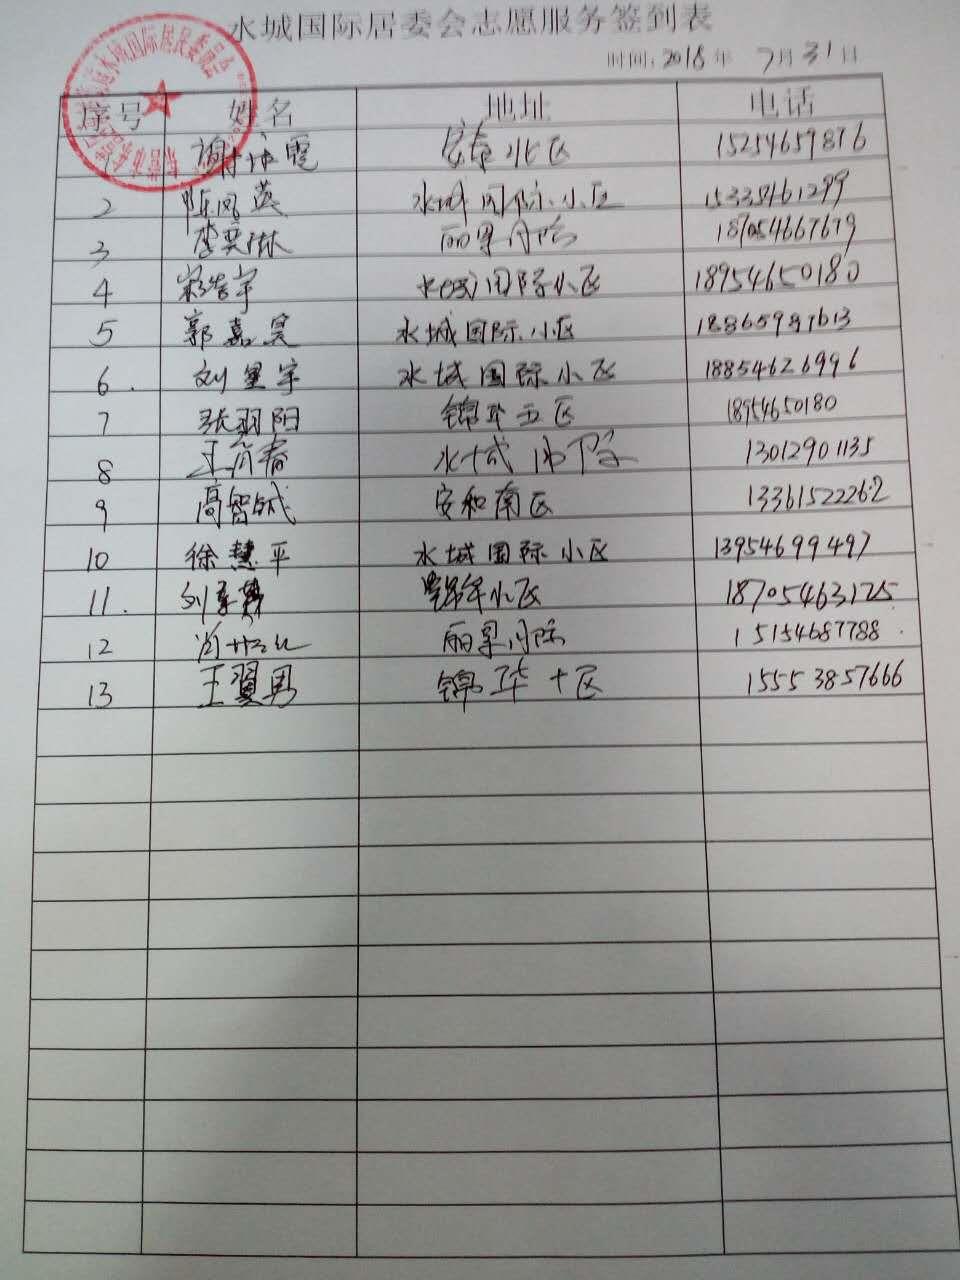 水城国际居委会志愿服务签到表
时间:2016年 7月31日
序号 姓名 地址 电话
北区 15254659876
2 陈凤英 水城国际小区 15335461299
3 李奕琳 丽景门院 187054667679
4 宋浩宇 水城国际小区 18954650180
5 郭嘉昊 水城国际小区 18865987613
6. 刘星宇 水城国际小区 18854626996
7 张羽阳 锦华五区 18954650180
8 王春 水城 13012901135
9 高智铖 安和南区 13361522262
10 徐慧平 水城国际小区 13954699497
11. 刘 小区 18705463125
12 15154687788
13 王翼男 锦华十区 15553857666